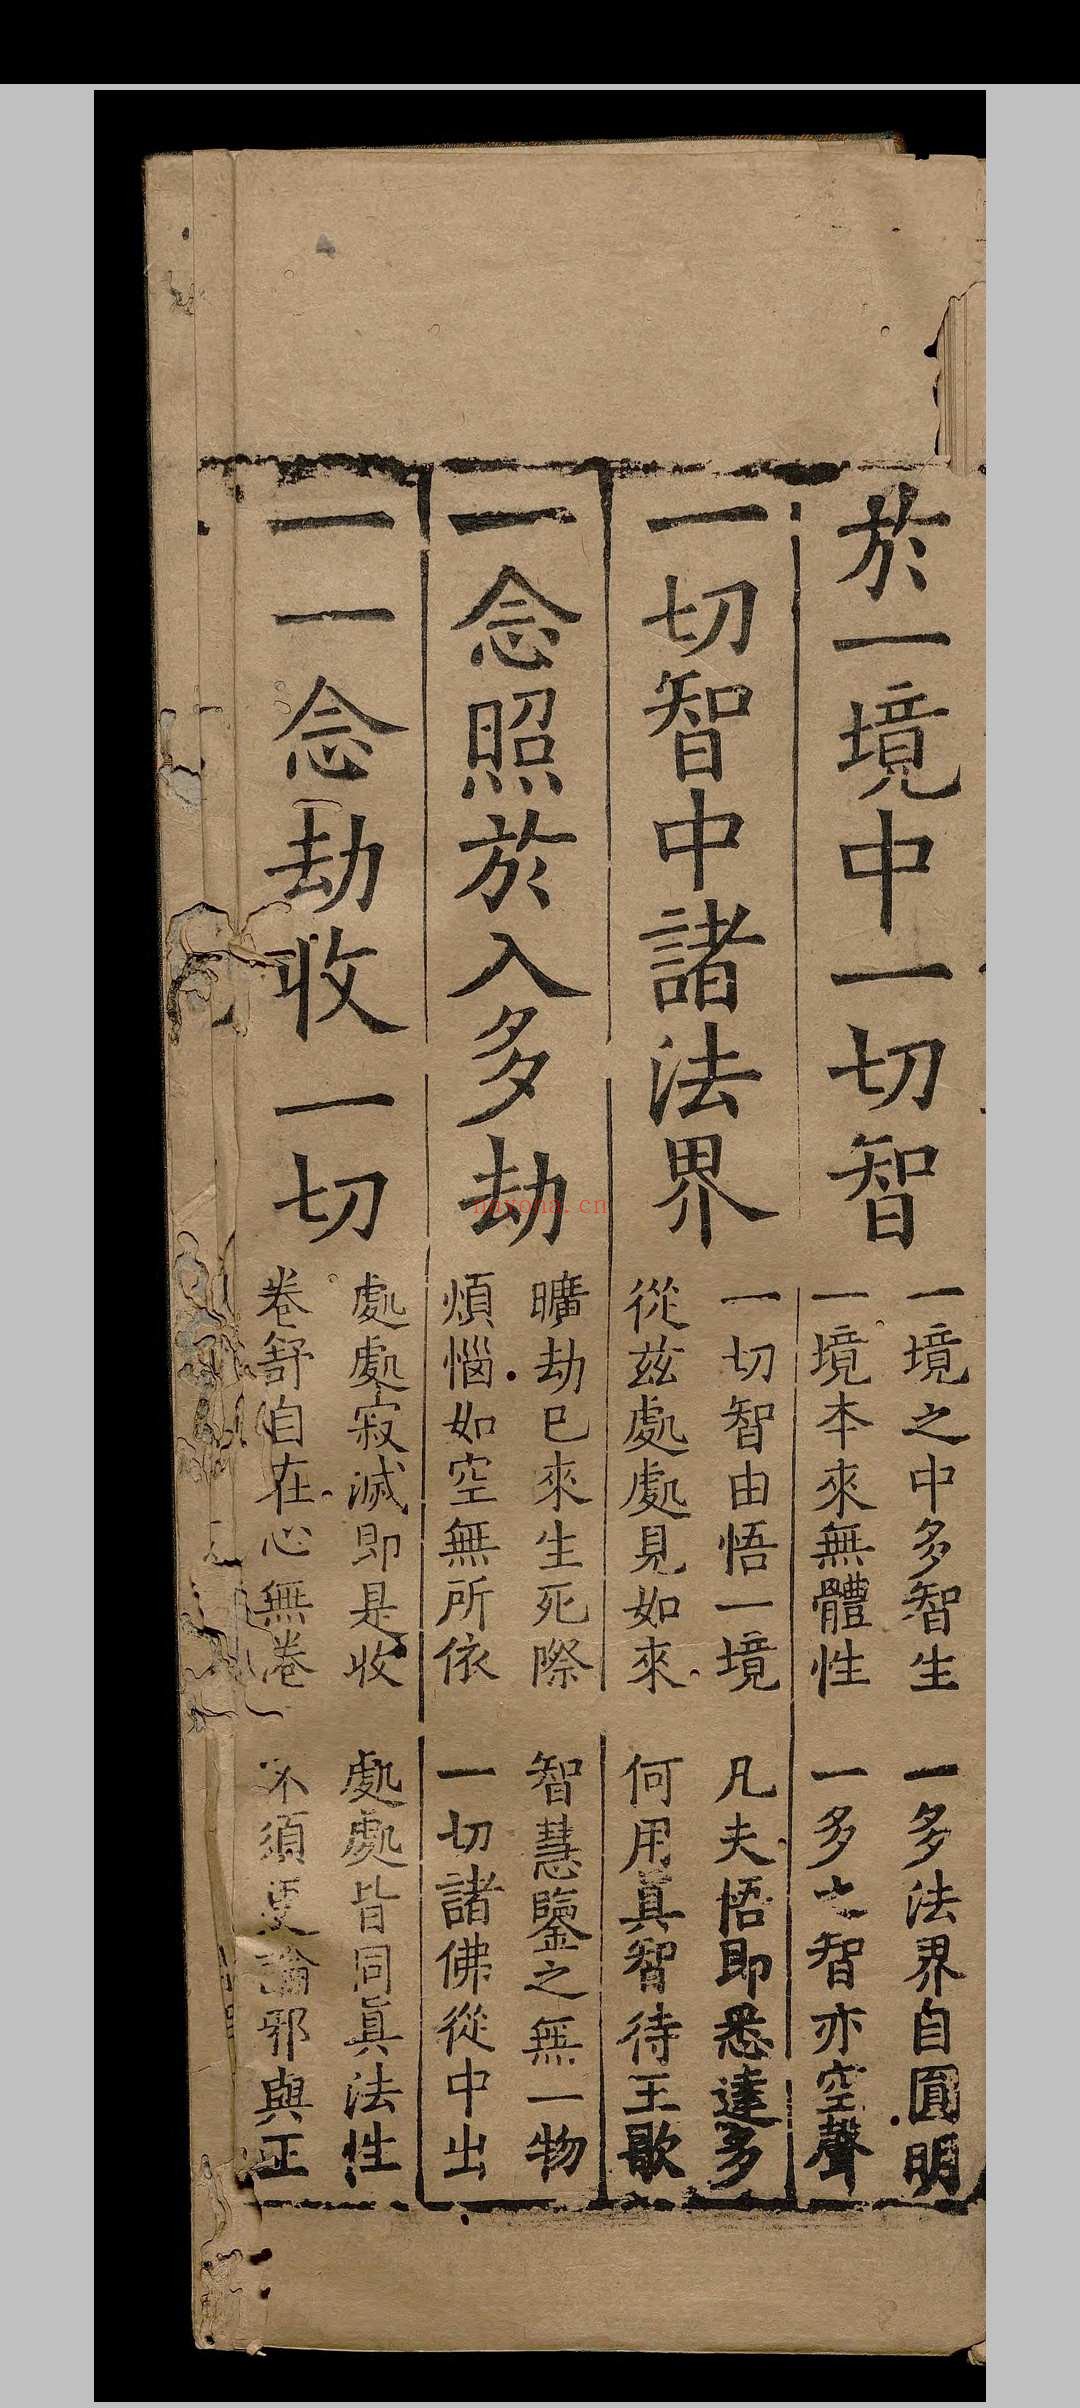 於一境中一切智
一境之中多智生　一多法界自圓明
一境本來無體性　一多之智亦空聲
一切智中諸法界
一切智由悟一境　凡夫悟即悉達多
從茲處處見如來　何用真智待王歌
一念照於入多劫
曠劫已來生死際　智慧鑒之無一物
煩惱如空無所依　一切諸佛從中出
一一念劫收一切
處處寂滅即是收　處處皆同眞法性
卷舒自在心無卷　不須更論邪與正
nayona.cn